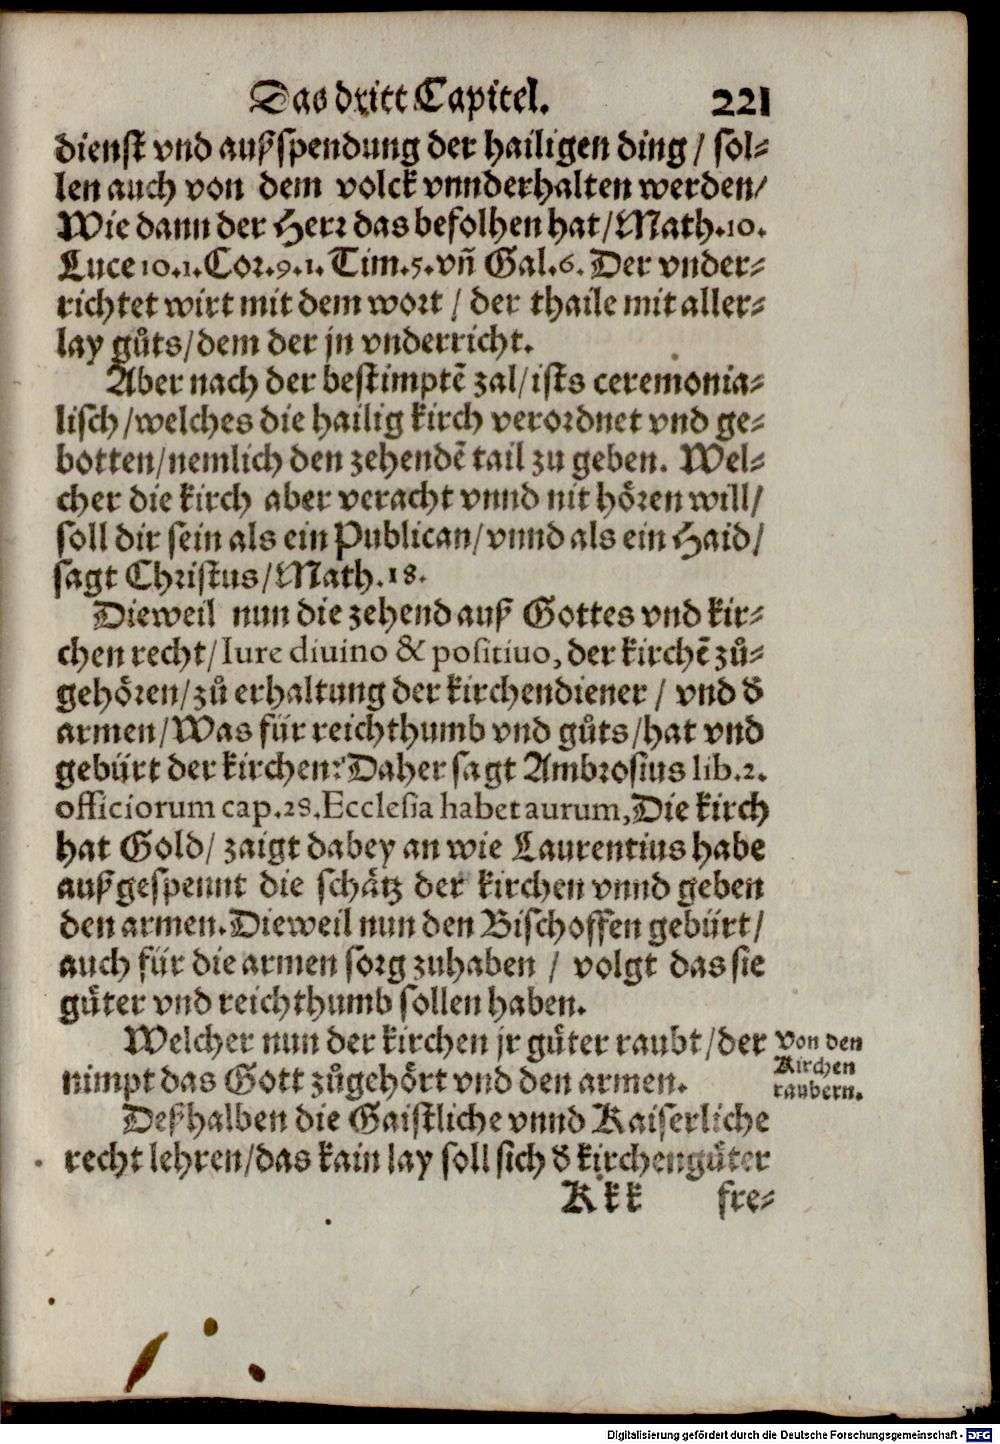 Das dritt Capitel. 221
dienst vnd außspendung der hailigen ding / sol⸗
len auch von dem volck vnnderhalten werden/
Wie dann der Herr das befolhen hat/Math.10.
Luce 10.1.Cor.9.1. Tim.5.vñ Gal.6. Der vnder⸗
richtet wirt mit dem wort / der thaile mit aller⸗
lay gůts/dem der jn vnderricht.
Aber nach der bestimptẽ zal/ists ceremonia⸗
lisch/welches die hailig kirch verordnet vnd ge⸗
botten/nemlich den zehendẽ tail zu geben. Wel⸗
cher die kirch aber veracht vnnd nit hören will/
soll dir sein als ein Publican/vnnd als ein Haid/
sagt Christus/Math.18.
Dieweil nun die zehend auß Gottes vnd kir⸗
chen recht/Iure diuino & positiuo, der kirchẽ zů⸗
gehören/zů erhaltung der kirchendiener / vnd d̕
armen/Was für reichthumb vnd gůts/hat vnd
gebürt der kirchen? Daher sagt Ambrosius lib.2.
officiorum cap.28.Ecclesia habet aurum,Die kirch
hat Gold/ zaigt dabey an wie Laurentius habe
außgespennt die schätz der kirchen vnnd geben
den armen.Dieweil nun den Bischoffen gebürt/
auch für die armen sorg zuhaben / volgt das sie
güter vnd reichthumb sollen haben.
Welcher nun der kirchen jr güter raubt/der
nimpt das Gott zůgehört vnd den armen.
Von den
Kirchen
raubern.
Deßhalben die Gaistliche vnnd Kaiserliche
recht lehren/das kain lay soll sich d̕ kirchengüter
Kkk fre⸗
Digitalisierung gefördert durch die Deutsche Forschungsgemeinschaft - DFG